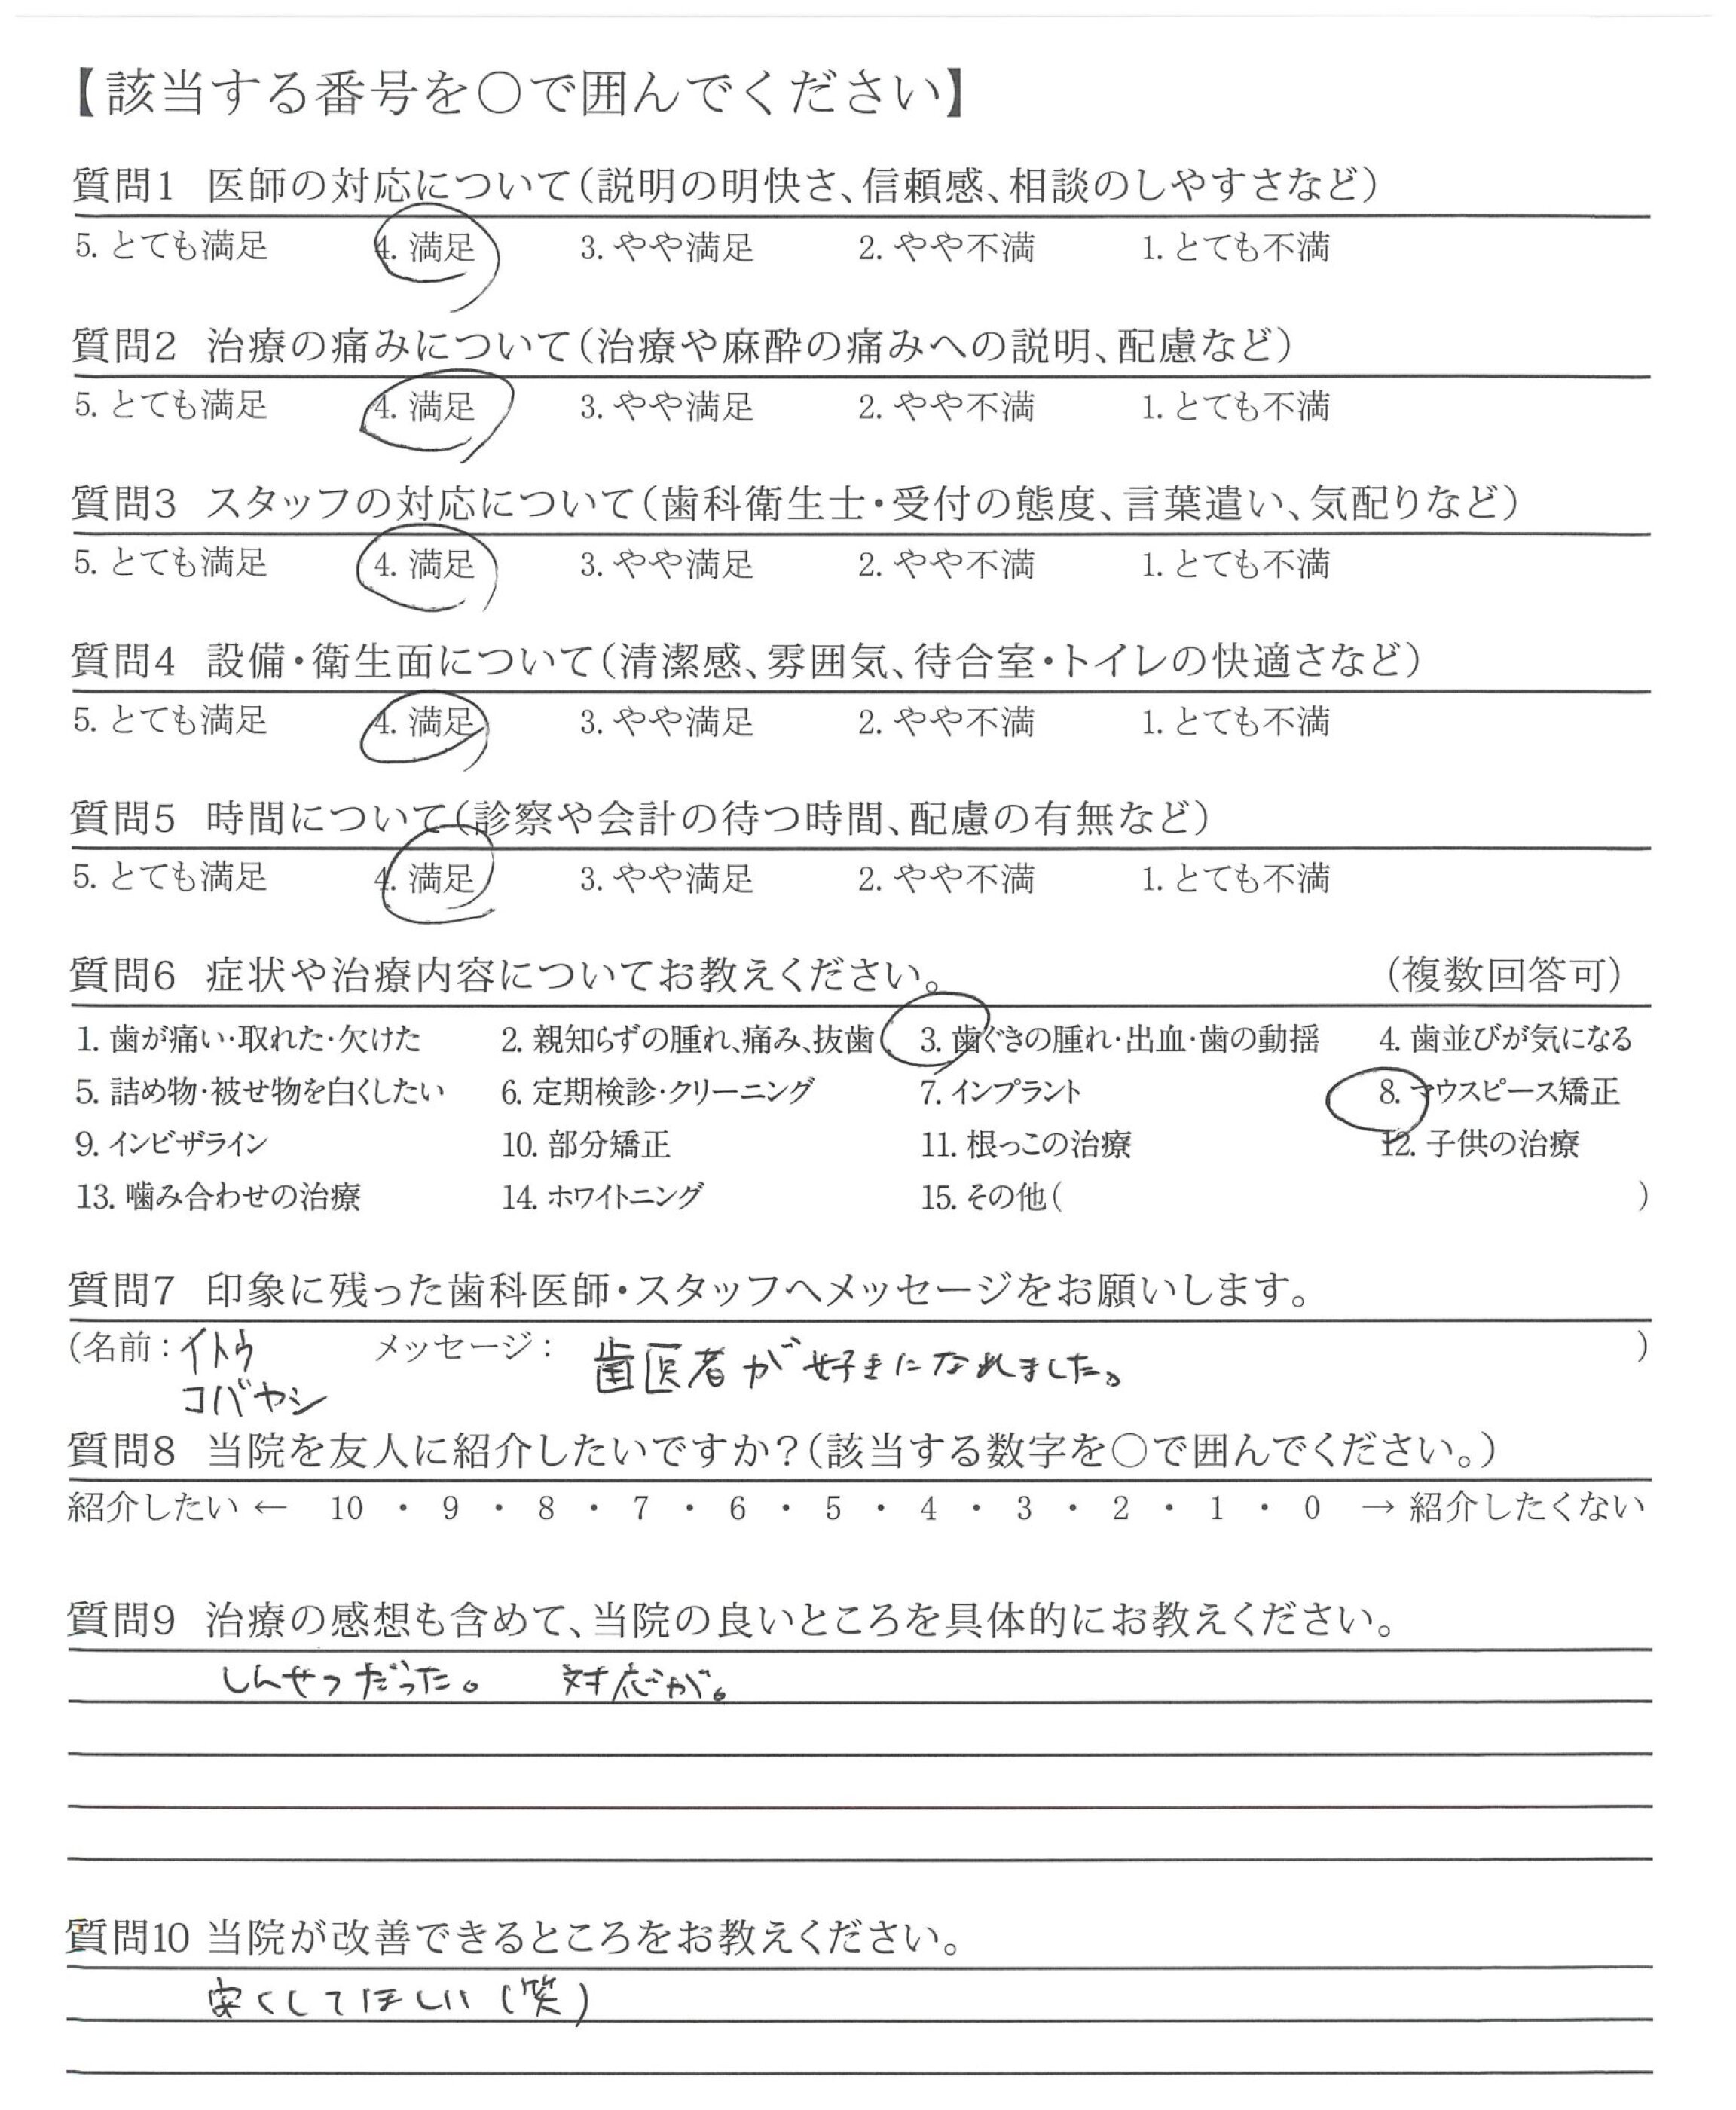 【該当する番号を○で囲んでください】
質問1 医師の対応について(説明の明快さ、信頼感、相談のしやすさなど)
5. とても満足 4. 満足 3. やや満足 2. やや不満 1. とても不満
質問2 治療の痛みについて(治療や麻酔の痛みへの説明、配慮など)
5. とても満足 4. 満足 3. やや満足 2. やや不満 1. とても不満
質問3 スタッフの対応について(歯科衛生士・受付の態度、言葉遣い、気配りなど)
5. とても満足 4. 満足 3. やや満足 2. やや不満 1. とても不満
質問4 設備・衛生面について(清潔感、雰囲気、待合室・トイレの快適さなど)
5. とても満足 4. 満足 3. やや満足 2. やや不満 1. とても不満
質問5 時間について(診察や会計の待つ時間、配慮の有無など)
5. とても満足 4. 満足 3. やや満足 2. やや不満 1. とても不満
質問6 症状や治療内容についてお教えください。 (複数回答可)
1. 歯が痛い・取れた・欠けた 2. 親知らずの腫れ、痛み、抜歯 3. 歯ぐきの腫れ・出血・歯の動揺 4. 歯並びが気になる
5. 詰め物・被せ物を白くしたい 6. 定期検診・クリーニング 7. インプラント 8. マウスピース矯正
9. インビザライン 10. 部分矯正 11. 根っこの治療 12. 子供の治療
13. 噛み合わせの治療 14. ホワイトニング 15. その他( )
質問7 印象に残った歯科医師・スタッフへメッセージをお願いします。
(名前：イトウ メッセージ： 歯医者が好きになれました。 )
コバヤシ
質問8 当院を友人に紹介したいですか？(該当する数字を○で囲んでください。)
紹介したい ← 10 ・ 9 ・ 8 ・ 7 ・ 6 ・ 5 ・ 4 ・ 3 ・ 2 ・ 1 ・ 0 → 紹介したくない
質問9 治療の感想も含めて、当院の良いところを具体的にお教えください。
しんせつだった。 対応が。
質問10 当院が改善できるところをお教えください。
安くしてほしい(笑)